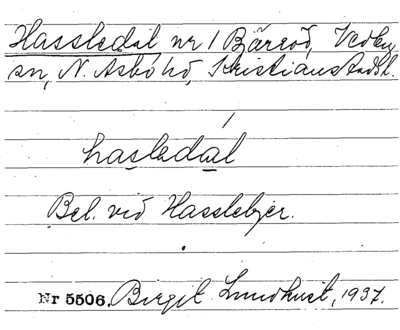 Hassledal nr 1 Bäreröd, Vedby
sn, N. Åsbo hd, Kristianstads l.
hasledal
Bel. vid Hasslebjer.
Nr 5506. Birgit Lundkvist, 1937.